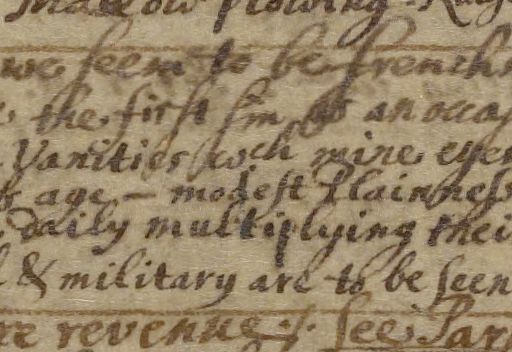 we seem to be french
the first sin as an occas
Vanities wch mine eyes
age - modest Plainness
daily multiplying thei
& military are to be seen
revenue: See Par